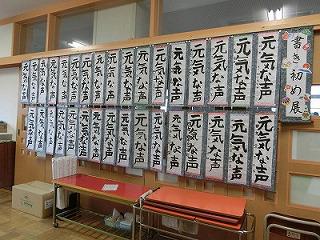 書き初め展
元気な声
元気な声
元気な声
元気な声
元気な声
元気な声
元気な声
元気な声
元気な声
元気な声
元気な声
元気な声
元気な声
元気な声
元気な声
元気な声
元気な声
元気な声
元気な声
元気な声
元気な声
元気な声
元気な声
元気な声
元気な声
元気な声
元気な声
元気な声
元気な声
元気な声
元気な声
元気な声